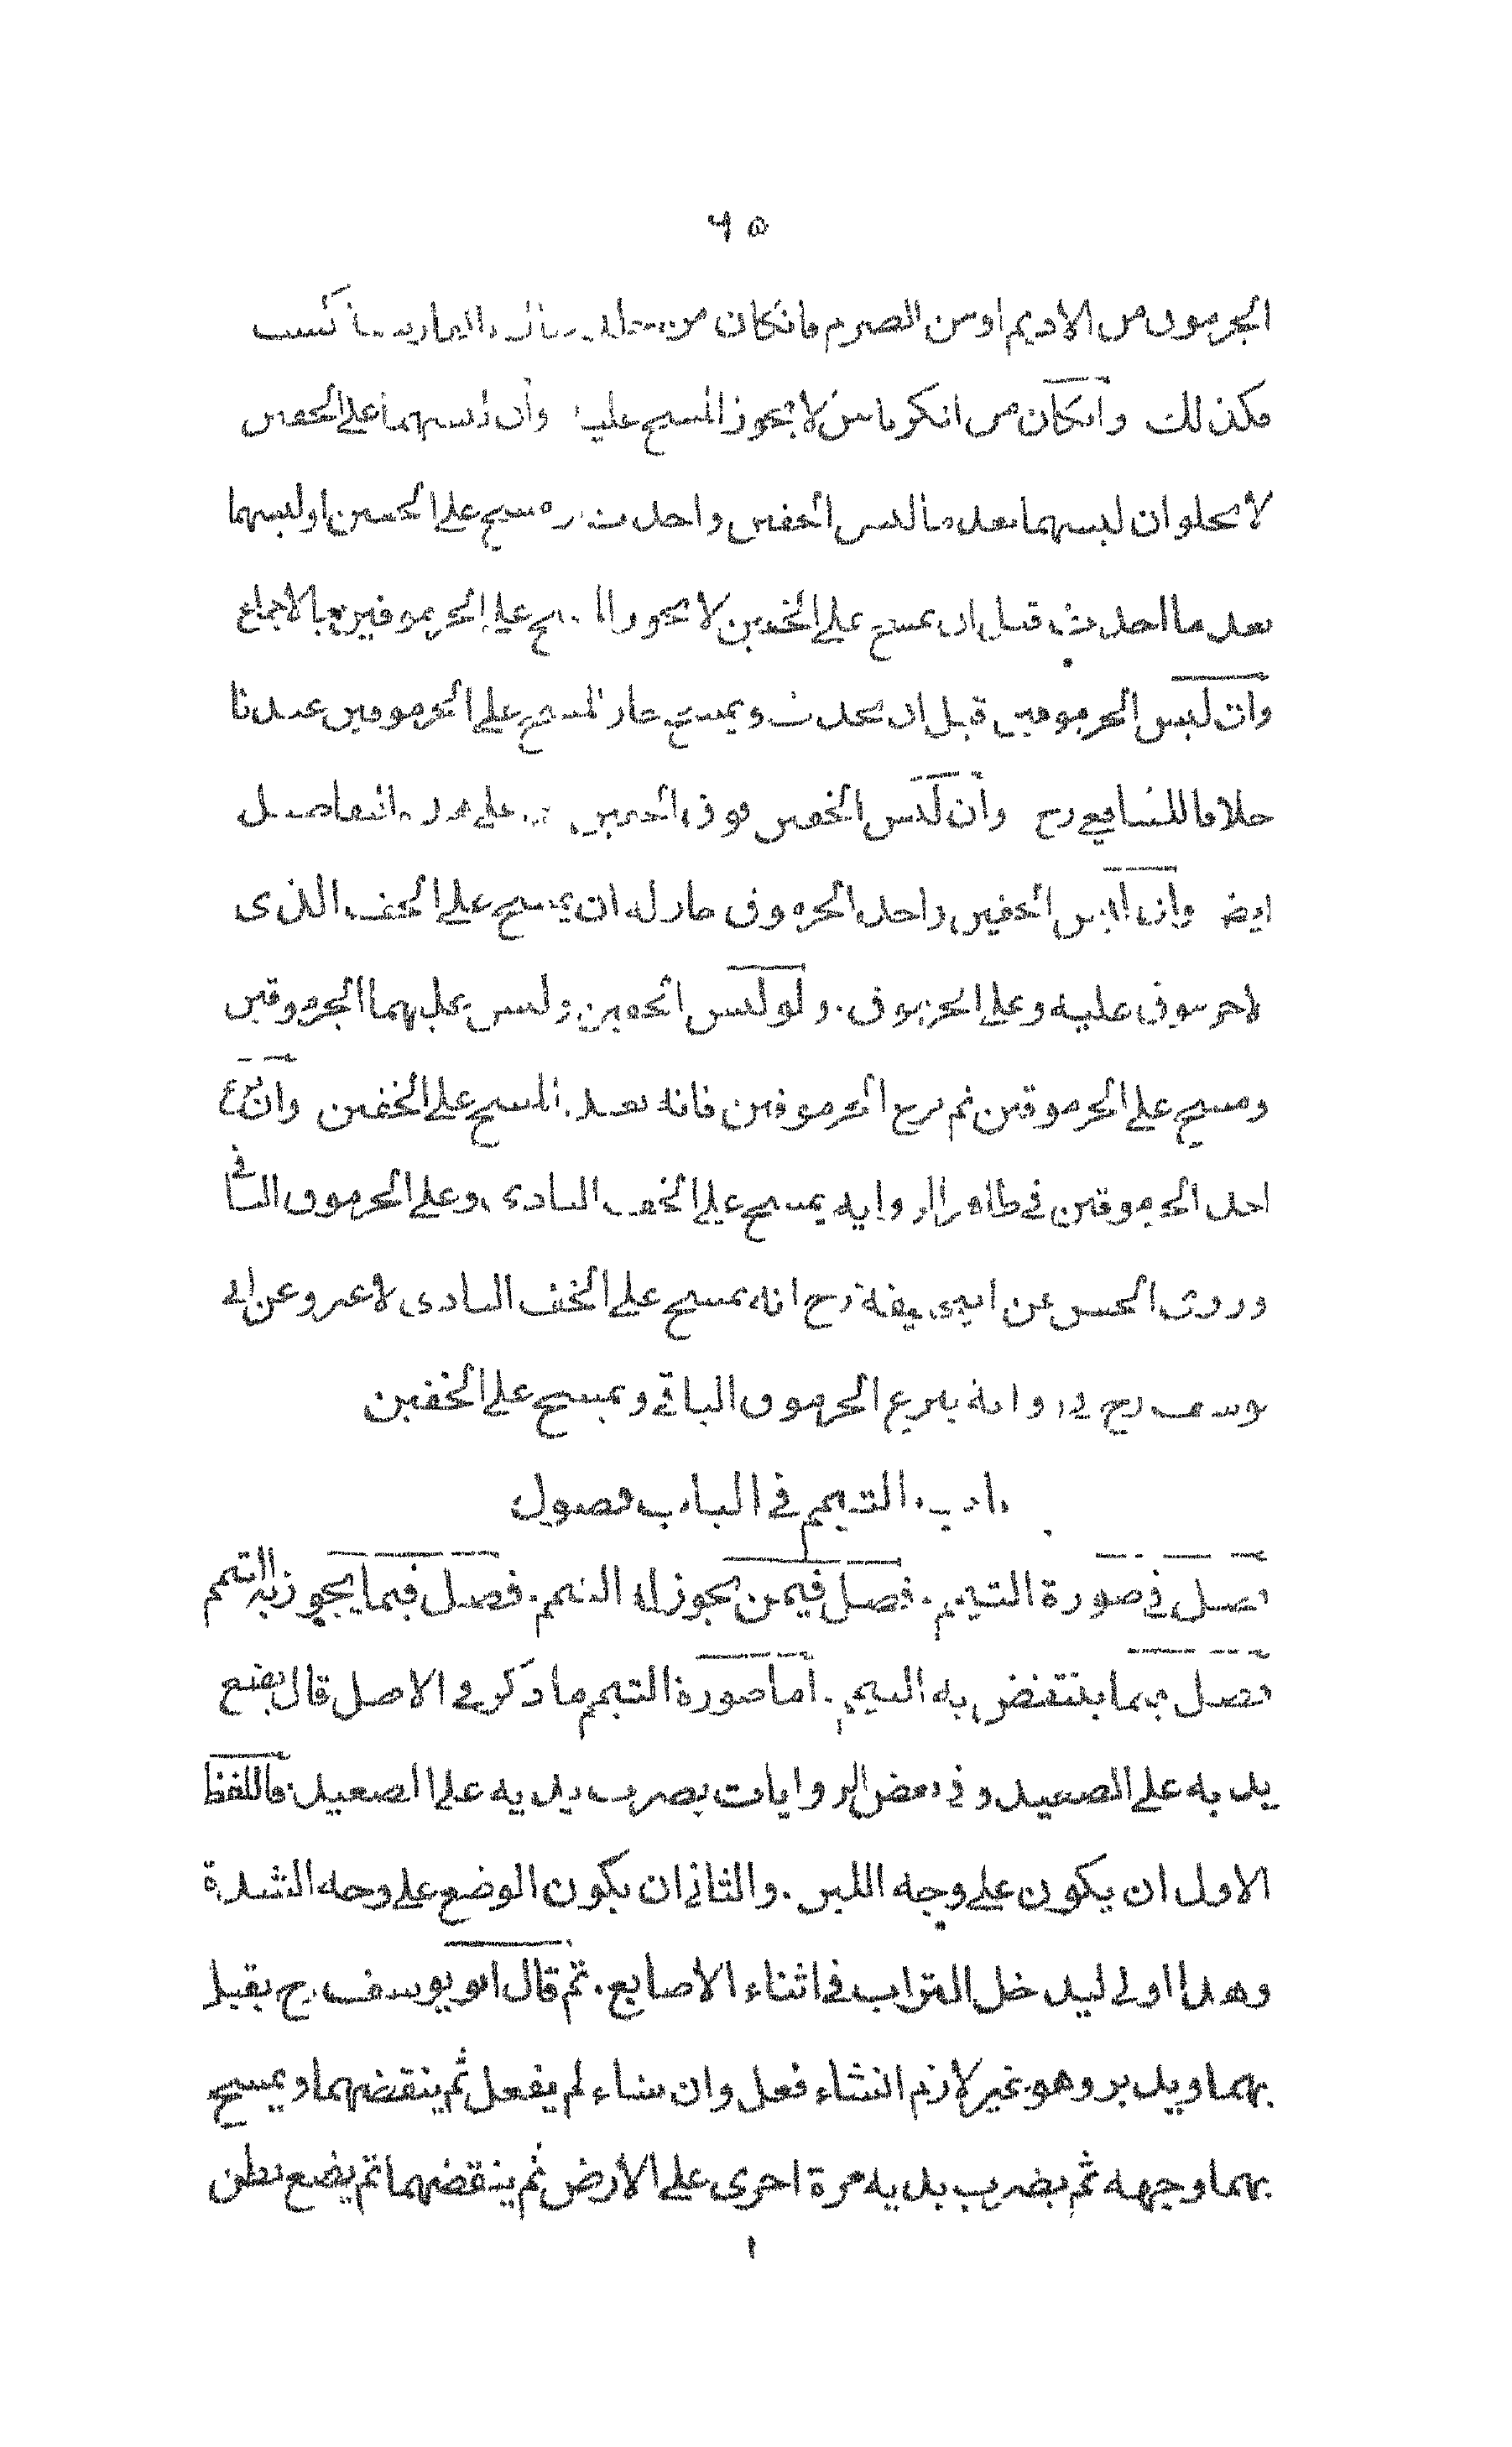 ٦٥
الجرموق من الاديم او من الصرم فانكان من
فكذلك وانكان من الكرباس لا يجوز المسح عليه وان لبسهما على الخفين
لا يخلو ان لبسهما بعد ما لبس الخفين واحدث ومسح على الخفين او لبسهما
بعد ما احدث قبل ان يمسح على الخفين لا يجوز المسح على الجرموقين بالاجماع
وان لبس الجرموقين قبل ان يحدث ويمسح جاز المسح على الجرموقين عندنا
خلافا للشافعي رح وان لبس الخفين فوق الخفين على هذه التفاصيل
ايض وان لبس الخفين واحد الجرموق جاز له ان يمسح على الخف الذى
لا جرموق عليه وعلى الجرموق. ولو لبس الخفين ولبس عليهما الجرموقين
ومسح على الجرموقين ثم نزع الجرموقين فانه يعيد المسح على الخفين وان نزع
احد الجرموقين في ظاهر الرواية يمسح على الخف البادى وعلى الجرموق الباقي
وروى الحسن عن ابي حنيفة رح انه يمسح على الخف البادى لا غير وعن ابي
يوسف رح في رواية ينزع الجرموق الباقي ويمسح على الخفين
باب التيمم في الباب فصول
فصل في صورة التيمم. فصل فيمن يجوز له التيمم. فصل فيما يجوز به التيمم
فصل فيما ينتقض به التيمم. اما صورة التيمم ما ذكر في الاصل قال يضع
يديه على الصعيد وفي بعض الروايات يضرب يديه على الصعيد فاللفظ
الاول ان يكون على وجه اللين. والثاني ان يكون الوضع على وجه الشدة
وهذا اولى ليدخل التراب في اثناء الاصابع. ثم قال ابو يوسف رح يقبل
بهما ويدبر وهو غير لازم ان شاء فعل وان شاء لم يفعل ثم ينفضهما ويمسح
بهما وجهه ثم يضرب يديه مرة اخرى على الارض ثم ينفضهما ثم يضع بطن
١